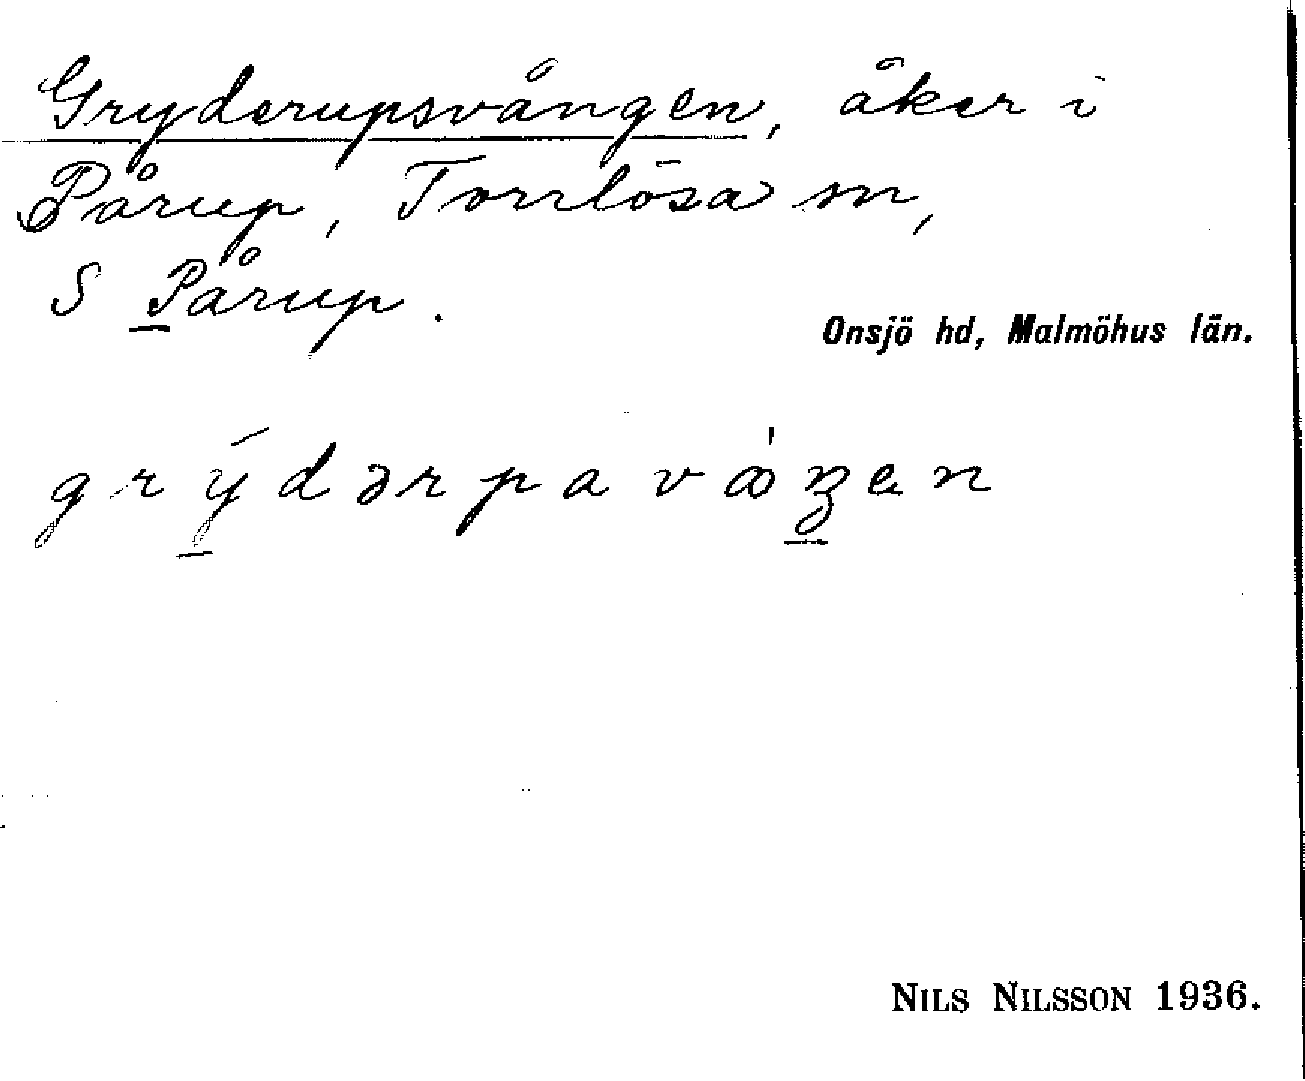 Gryderupsvången, åker i
Pårup, Torrlösa sn,
S Pårup.
Onsjö hd, Malmöhus län.
NILS NILSSON 1936.